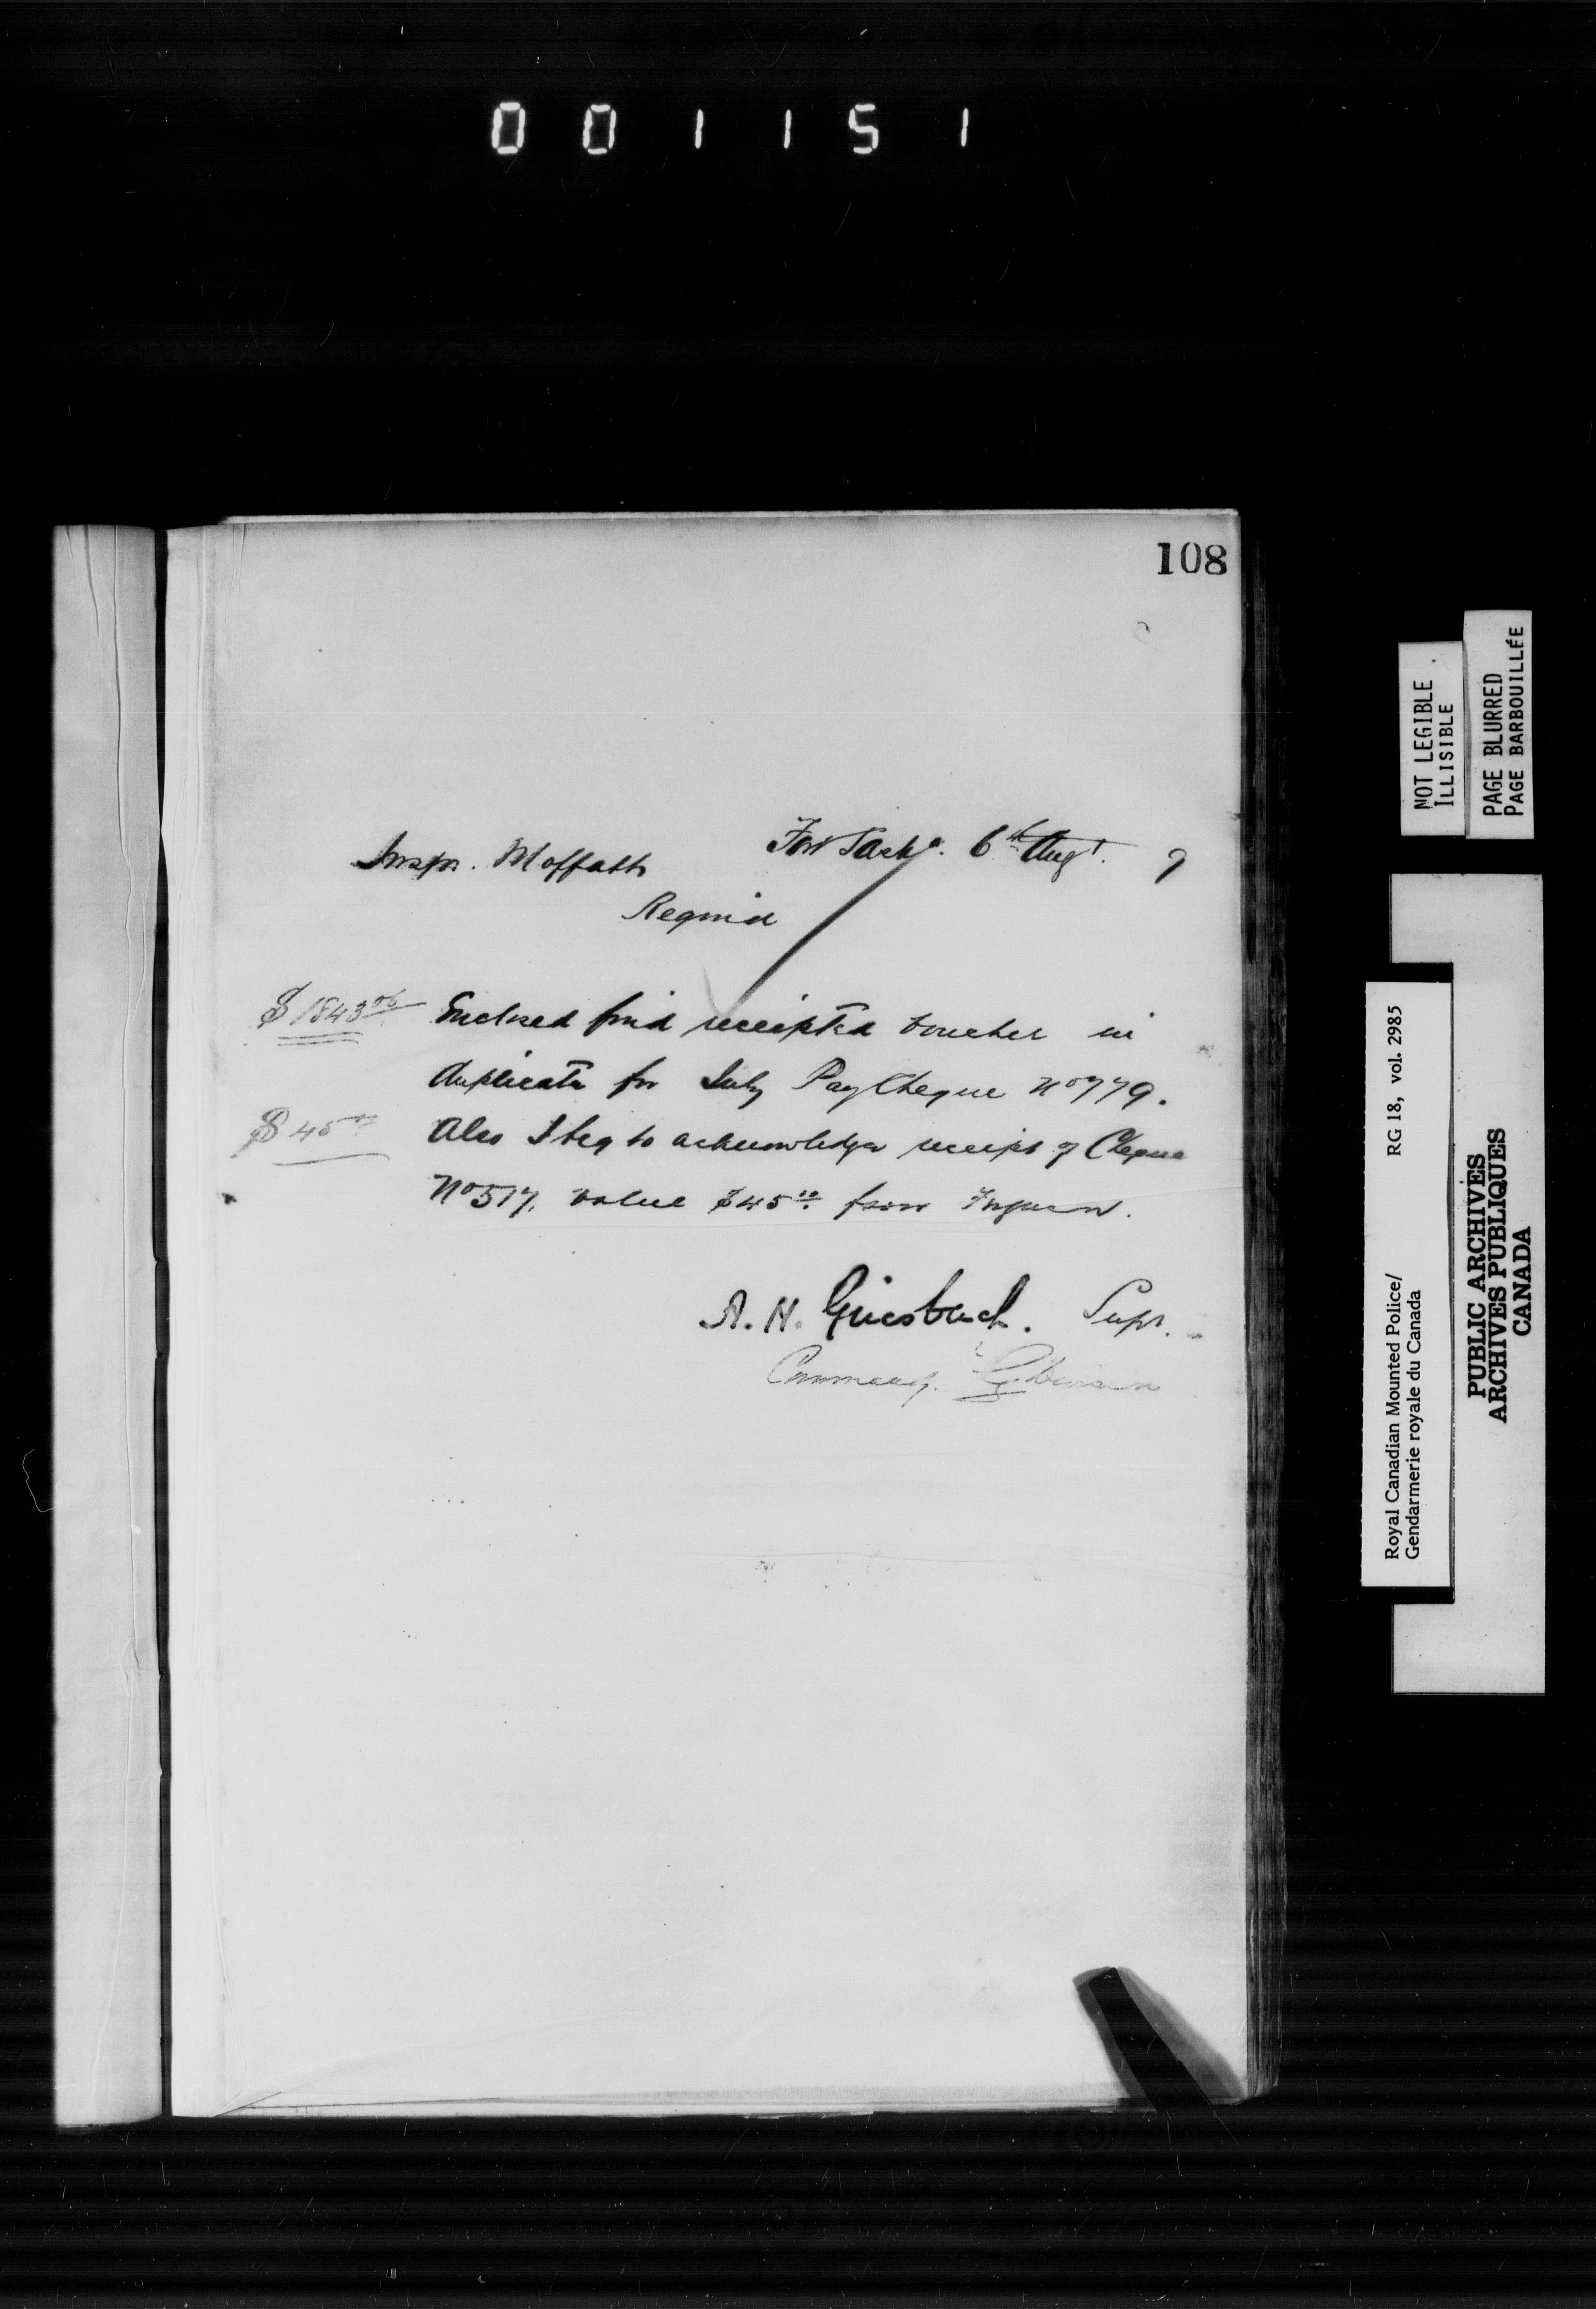 001151
108
Fort Saskn. 6th Augt. 9
Inspr. Moffatt
Regina
$1843 06 Enclosed find receipted voucher in
duplicate for July Pay Cheque No 779.
$45 Also I beg to acknowledge receipt of Cheque
No 517, value $45 00 from
A. H. Griesbach. Supt.
Commandg. G Division
NOT LEGIBLE
ILLISIBLE
PAGE BLURRED
PAGE BARBOUILLÉE
Royal Canadian Mounted Police/
Gendarmerie royale du Canada
RG 18, vol. 2985
PUBLIC ARCHIVES
ARCHIVES PUBLIQUES
CANADA